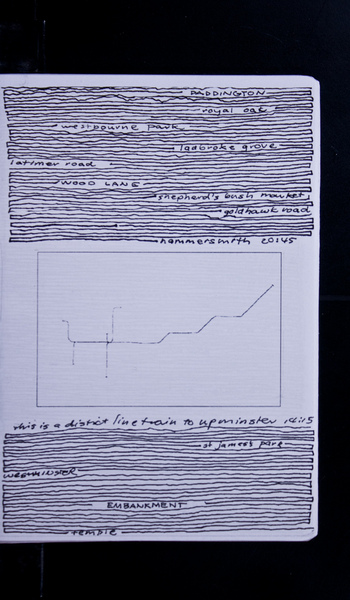 PADDINGTON
royal oak
westbourne park
ladbroke grove
latimer road
WOOD LANE
shepherd's bush market
goldhawk road
hammersmith 20:45
this is a district line train to upminster
st james's park
WESTMINSTER
EMBANKMENT
temple